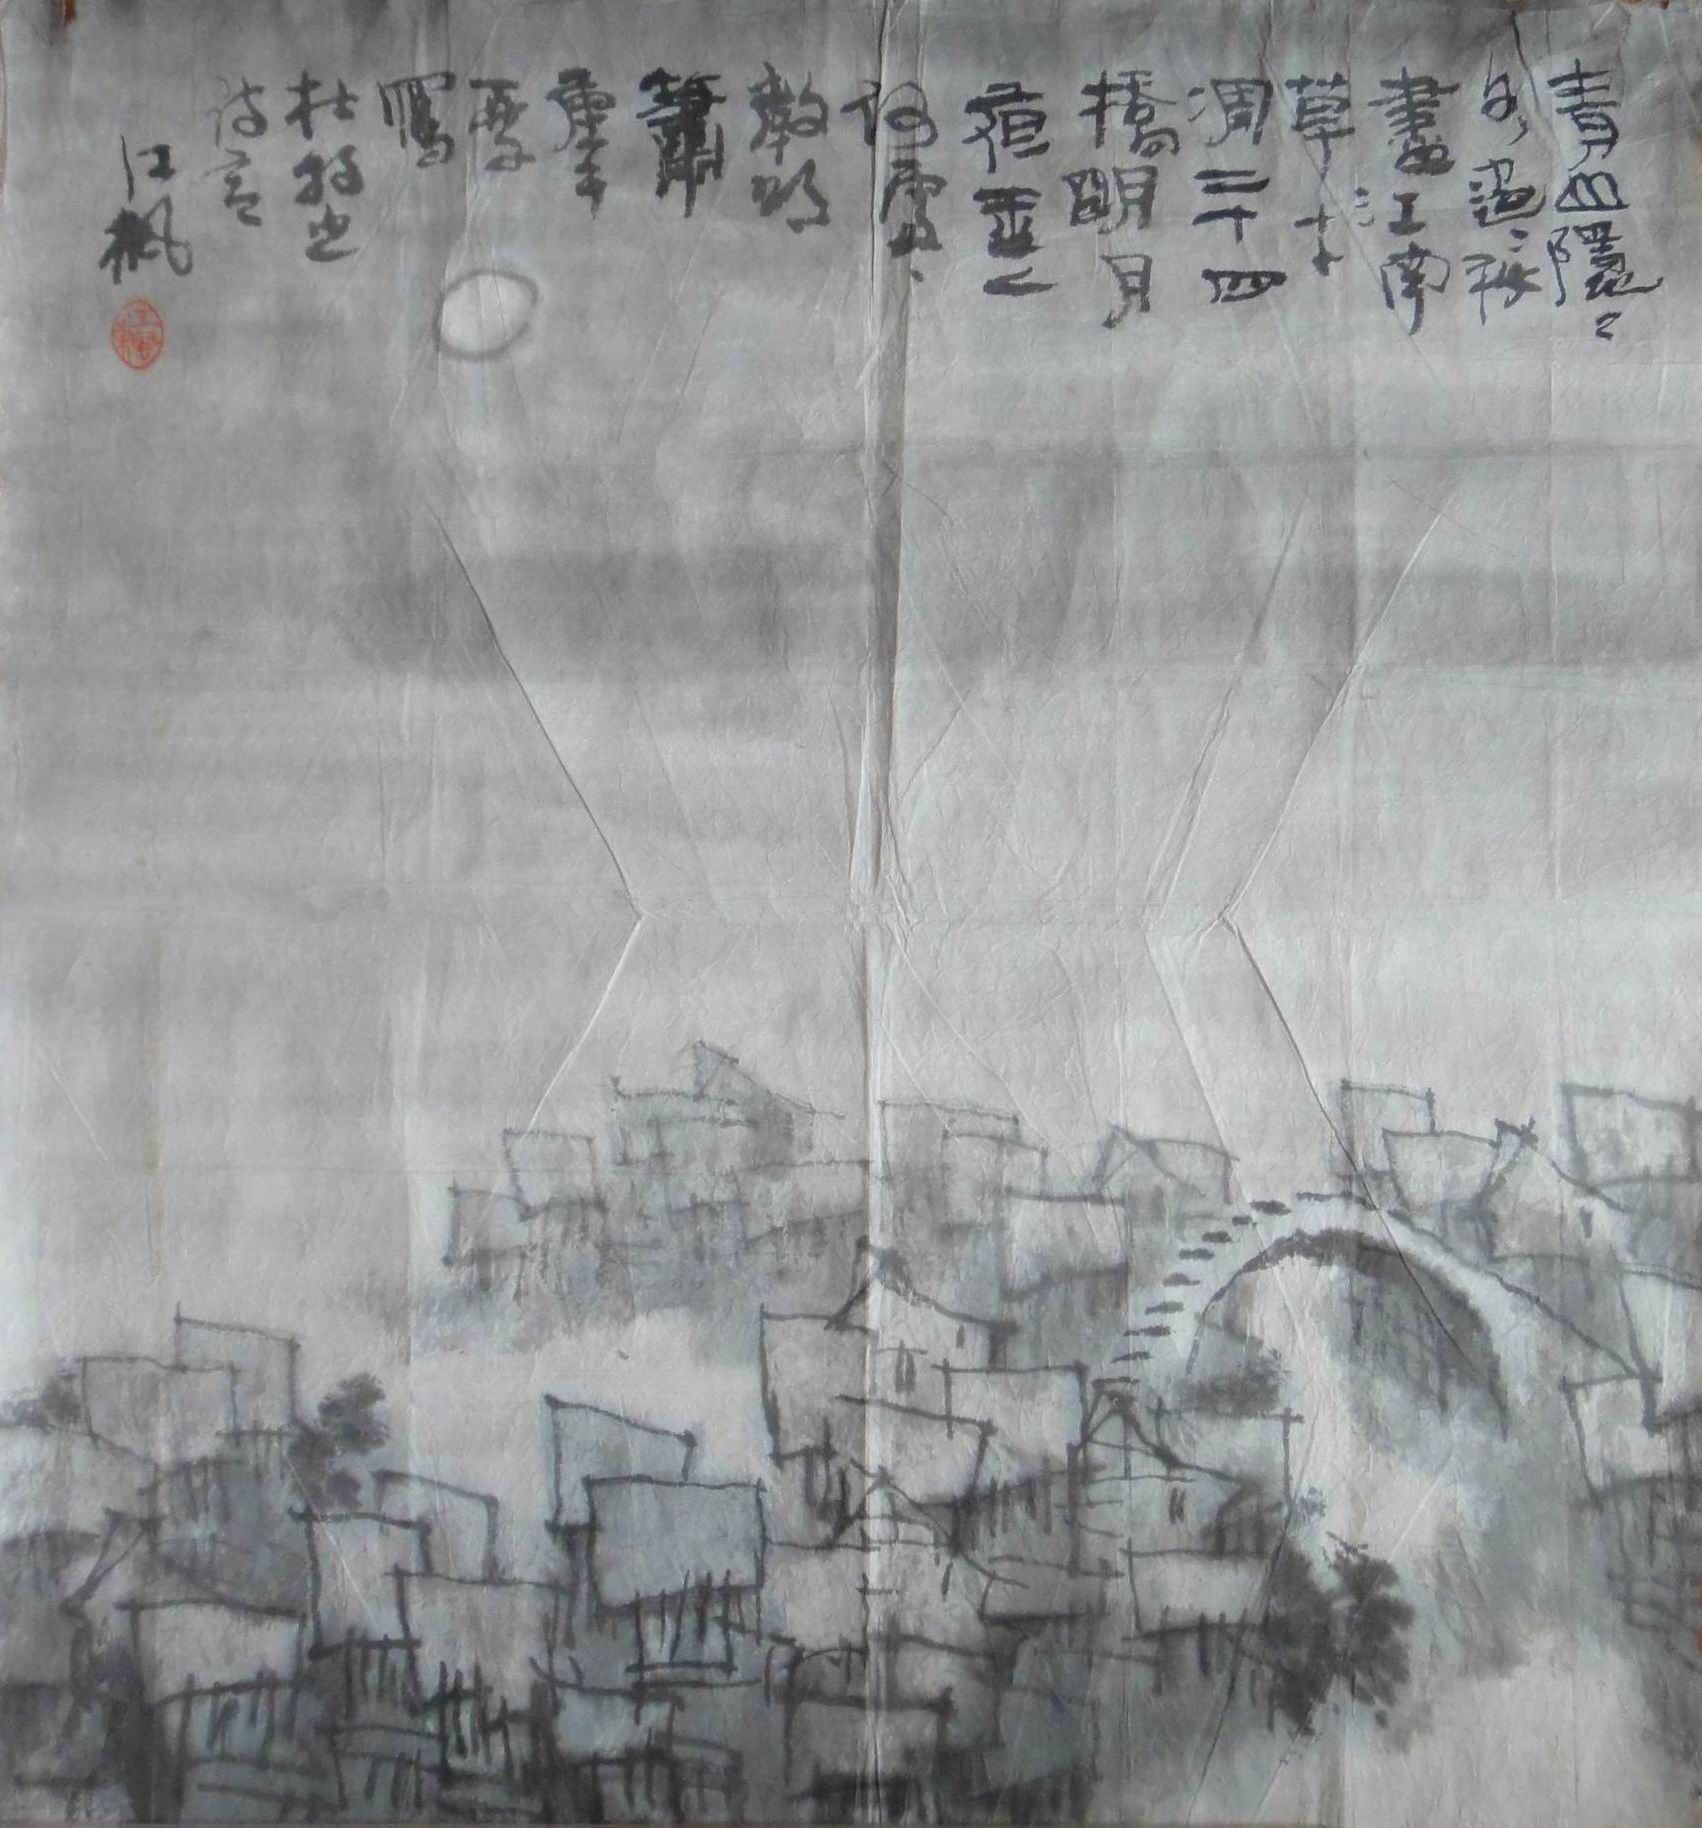 青山隱々
水遥々秋
盡江南
草木
凋二十四
橋明月
夜玉人
何處
教吹
簫
寫
杜牧之
詩意
江楓